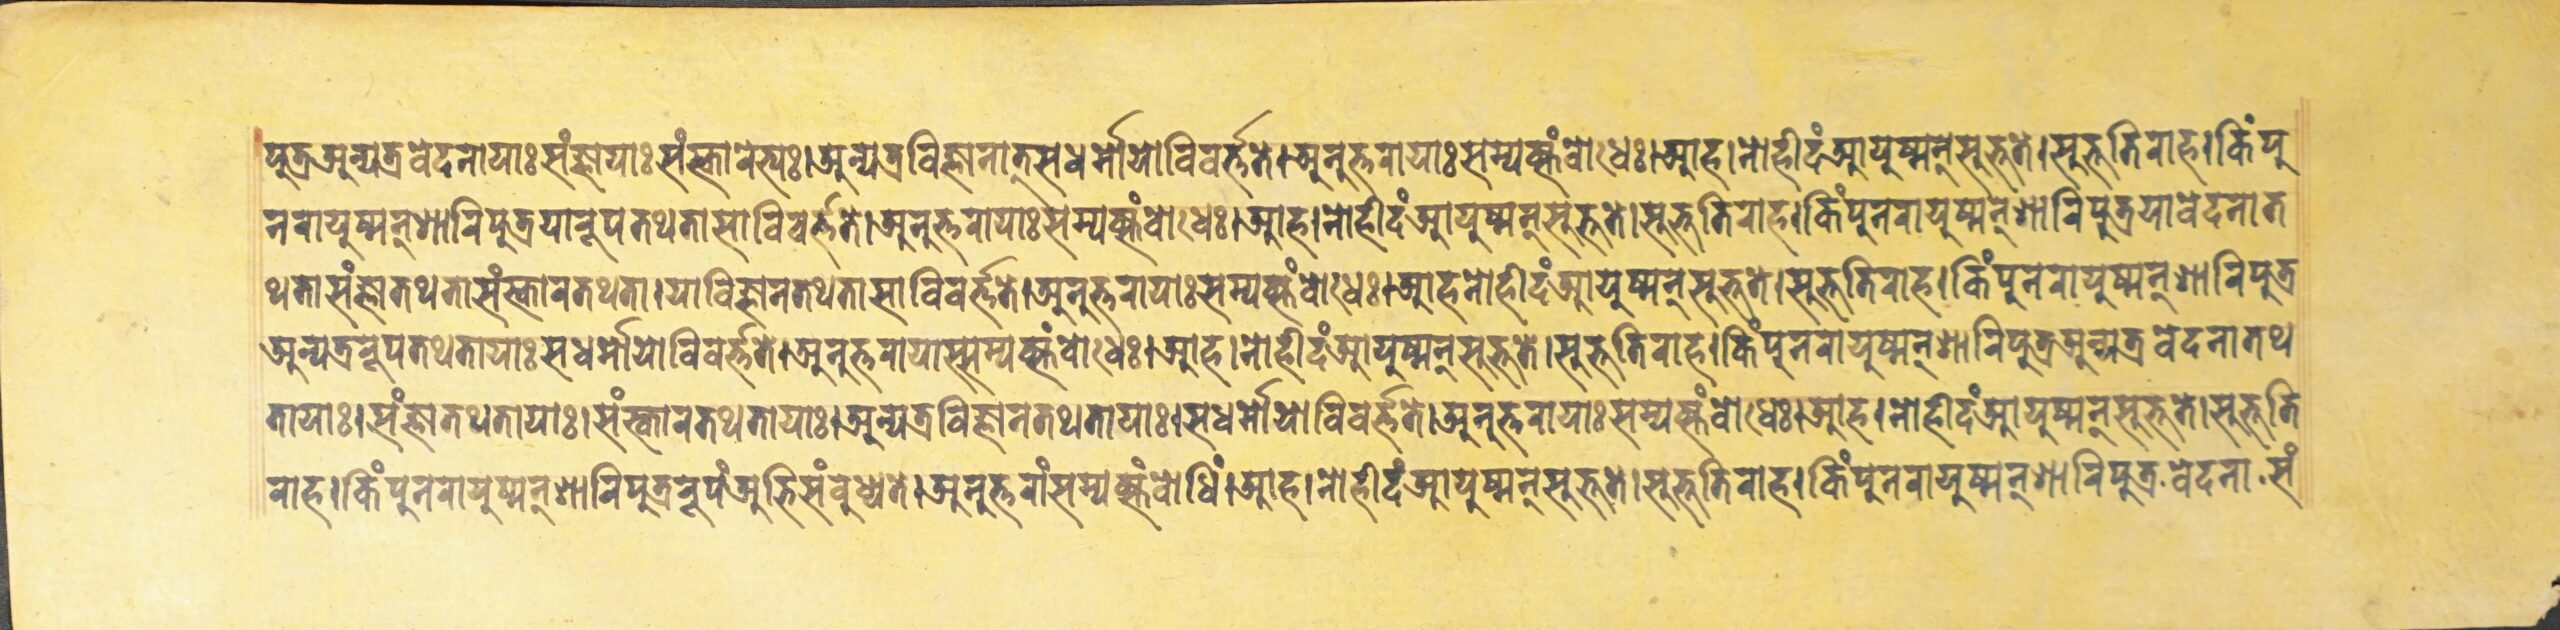 पुत्रअन्यत्रवेदनायाःसंज्ञायाःसंस्कारेभ्यः।अन्यत्रविज्ञानात्सधर्मोयोविवर्त्तते।अनुत्तरायाःसम्यक्संबोधेः।आह।नोहीदंआयुष्मन्सुभूते।सुभूतिराह।किंपु
नरायुष्मन्शारिपुत्रयारूपतथतासाविवर्त्तते।अनुत्तरायाःसम्यक्संबोधेः।आह।नोहीदंआयुष्मन्सुभूते।सुभूतिराह।किंपुनरायुष्मन्शारिपुत्रयावेदनात
थतासंज्ञातथतासंस्कारतथता।याविज्ञानतथतासाविवर्त्तते।अनुत्तरायाःसम्यक्संबोधेः।आहनोहीदंआयुष्मन्सुभूते।सुभूतिराह।किंपुनरायुष्मन्शारिपुत्र
अन्यत्ररूपतथतायाःसधर्मोयोविवर्त्तते।अनुत्तरायास्सम्यक्संबोधेः।आह।नोहीदंआयुष्मन्सुभूते।सुभूतिराह।किंपुनरायुष्मन्शारिपुत्रअन्यत्रवेदनातथ
तायाः।संज्ञातथतायाः।संस्कारतथतायाः।अन्यत्रविज्ञानतथतायाः।सधर्मोयोविवर्त्तते।अनुत्तरायाःसम्यक्संबोधेः।आह।नोहीदंआयुष्मन्सुभूते।सुभूति
राह।किंपुनरायुष्मन्शारिपुत्ररूपंअभिसंबुध्यते।अनुत्तरांसम्यक्संबोधिं।आह।नोहीदंआयुष्मन्सुभूते।सुभूतिराह।किंपुनरायुष्मन्शारिपुत्र.वेदना.सं